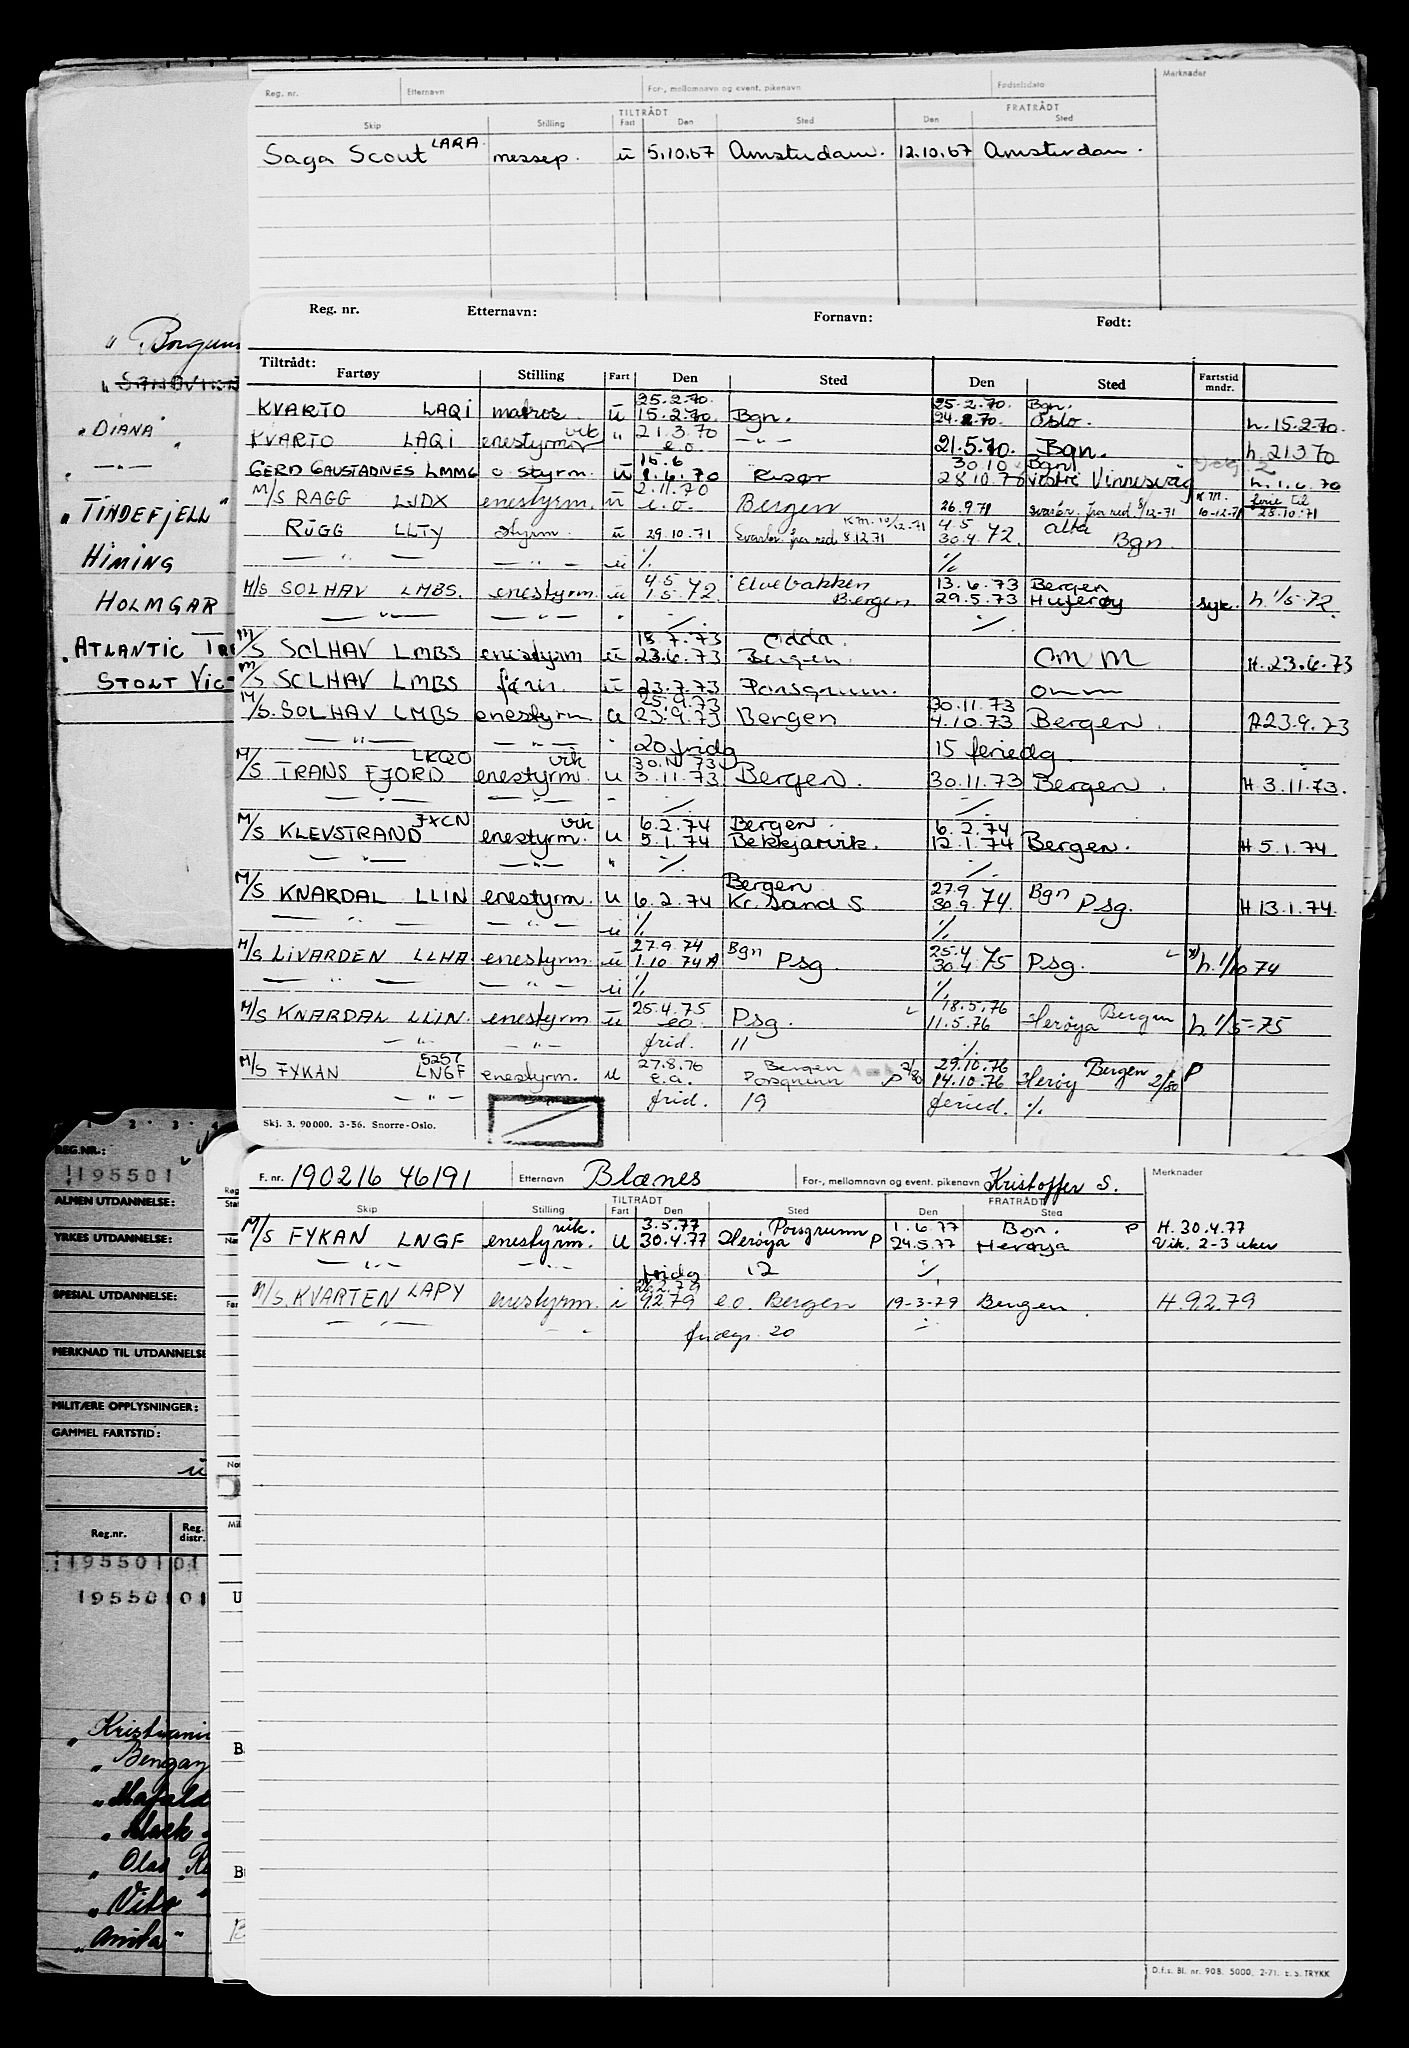 Reg. nr. Etternavn For-, mellomnavn og event. pikenavn Fødselsdato Merknader
TILTRÅDT FRATRÅDT
Skip Stilling Fart Den Sted Den Sted
Saga Scout LARA messep. ü 5.10.67 Amsterdam. 12.10.67 Amsterdam.
Reg. nr. Etternavn: Fornavn: Født:
Tiltrådt:
Fartøy Stilling Fart Den Sted Den Sted Fartstid mndr.
25.2.70. 25.2.70. Bgn.
KVARTO LAQI matros ü 15.2.70. Bgn. 24.2.70. Oslo. h. 15.2.70.
KVARTO LAQI enestyrm vik " 21.3.70 — " — 21.5.70. Bgn. h. 21370
e.o
15.6 30.10 Bgn
GERD GAUSTADNES LMMG o styrm. ü 1.6.70 Risør 28.10.70 Vestre Vinnesvåg h. 1.6.70
2.11.70
M/S RAGG LJDX enestyrm. ü e.o. Bergen 26.9.71 svarbr. fra red 8/12-71 K.M. 10-12-71 ferie til 28.10.71
RUGG LLTY styrm. ü 29.10.71 Svarbr. fra red 8.12.71 K.M. 10/12-71 4.5 30.4.72. alta Bgn.
— " — — " — ü % %
M/S SOLHAV LMBS. enestyrm. ü 4.5 1.5.72. Elvebakken Bergen 13.6.73 29.5.73 Bergen Husøy syk. h. 1/5-72
— " — — " — " % %
18.7.73 Odda.
M/S SOLHAV LMBS enestyrm ü 23.6.73 Bergen. omm H. 23.6.73
M/S SOLHAV LMBS fører. ü 23.7.73 Porsgrunn. omm
25.9.73 30.11.73
M/S. SOLHAV LMBS enestyrm ü 23.9.73 Bergen 4.10.73 Bergen. H 23.9.73
— " — — " — " 20 fridg 15 feriedg.
LKQO vik 30.11.73
M/S TRANS FJORD enestyrm. u 3.11.73 Bergen. 30.11.73 Bergen. H. 3.11.73.
— " — — " — " % %
JXCN vik 6.2.74 Bergen. 6.2.74
M/S KLEVSTRAND enestyrm. u 5.1.74 Bekkjarvik. 12.1.74 Bergen. H 5.1.74
— " — — " — " % %
Bergen 27.9 Bgn
M/S KNARDAL LLIN enestyrm. u 6.2.74 Kr. sand S. 30.9.74. Psg. H 13.1.74.
— " — — " — ü % %
27.9.74 Bgn 25.4
M/S LIVARDEN LLHA enestyrm. ü 1.10.74 A Psg. 30.4.75 Psg. h. 1/10 74
— " — — " — ü % %
25.4.75 18.5.76 Bergen
M/S KNARDAL LLIN. enestyrm ü e.o. Psg. 11.5.76 Herøya h 1/5-75
— " — — " — frid. 11 %
5257 27.8.76 Bergen 29.10.76 Bergen
M/S FYKAN LNGF enestyrm. u e.a. Porsgrunn P 2/80 14.10.76 Herøy 2/80 P
— " — frid. 19 feried. %
Skj. 3. 90000. 3-56. Snorre-Oslo.
" SANDVIKEN
" DIANA "
" — " — "
" TINDEFJELL "
HIMING
HOLMGAR
" ATLANTIC
STOLT
1 · 2 · 3 · 4
REG.NR.:
195501
ALMEN UTDANNELSE:
YRKES UTDANNELSE:
SPESIAL UTDANNELSE:
MERKNAD TIL UTDANNELSE
MILITÆRE OPPLYSNINGER:
GAMMEL FARTSTID:
ü
Reg.nr. Reg. distr.
195501 01
195501 01
" Bengay
" Vito "
" Anita "
F. nr. 190216 46191 Etternavn Blænes For-, mellomnavn og event. pikenavn Kristoffer S. Merknader
TILTRÅDT FRATRÅDT
Skip Stilling Fart Den Sted Den Sted
vik. 3.5.77 Porsgrunn 1.6.77 Bgn. P H. 30.4.77
M/S FYKAN LNGF enestyrm. u 30.4.77 Herøya P 24.5.77 Herøya Vik. 2-3 uker
— " — — " — fridg 12 %
26.2.79
M/S. KVARTEN LAPY enestyrm. i 9.2.79 e.o. Bergen 19-3-79 Bergen. H. 9.2.79
— " — — " — fridgr. 20 %
D.f.s. Bl. nr. 90B. 5000. 2-71. E.S. TRYKK